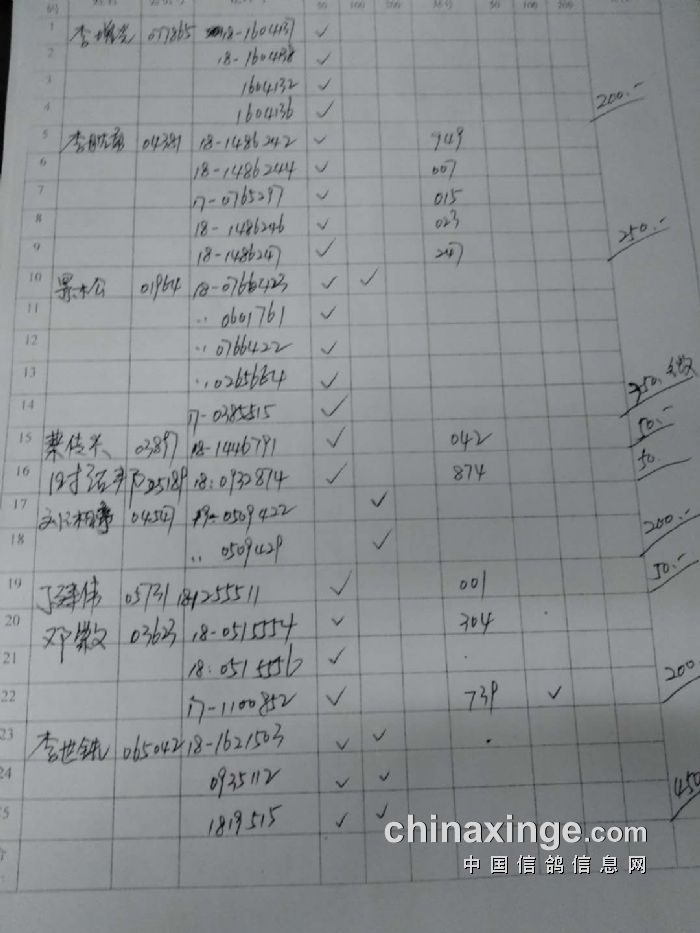 50 100 200 50 100 200
1 李 017865 18-1604137 ✓
2 18-1604138 ✓
3 1604132 ✓
4 1604136 ✓ 200.-
5 李 04381 18-1486242 ✓ 949
6 18-1486244 ✓ 007
7 17-0765297 ✓ 015
8 18-1486246 ✓ 023
9 18-1486247 ✓ 247 250.-
10 01964 18-0766423 ✓ ✓
11 ·· 0601761 ✓
12 ·· 0766422 ✓
13 ·· 0265664 ✓
14 17-0385515 ✓
15 蔡传 03897 18-1446791 ✓ 042 50.-
16 05189 18-0932874 ✓ 874 50.
17 04547 0509422 ✓
18 ·· 0509429 ✓ 200.-
19 伟 05731 18-1255511 ✓ 001 50.-
20 邓 03623 18-0515554 ✓ 304
21 18-0515556 ✓
22 17-1100852 ✓ 739 ✓ 200.
23 李世 065042 18-1621503 ✓ ✓
24 0935112 ✓ ✓
25 1819515 ✓ ✓ 450
chinaxinge.com
中国信鸽信息网